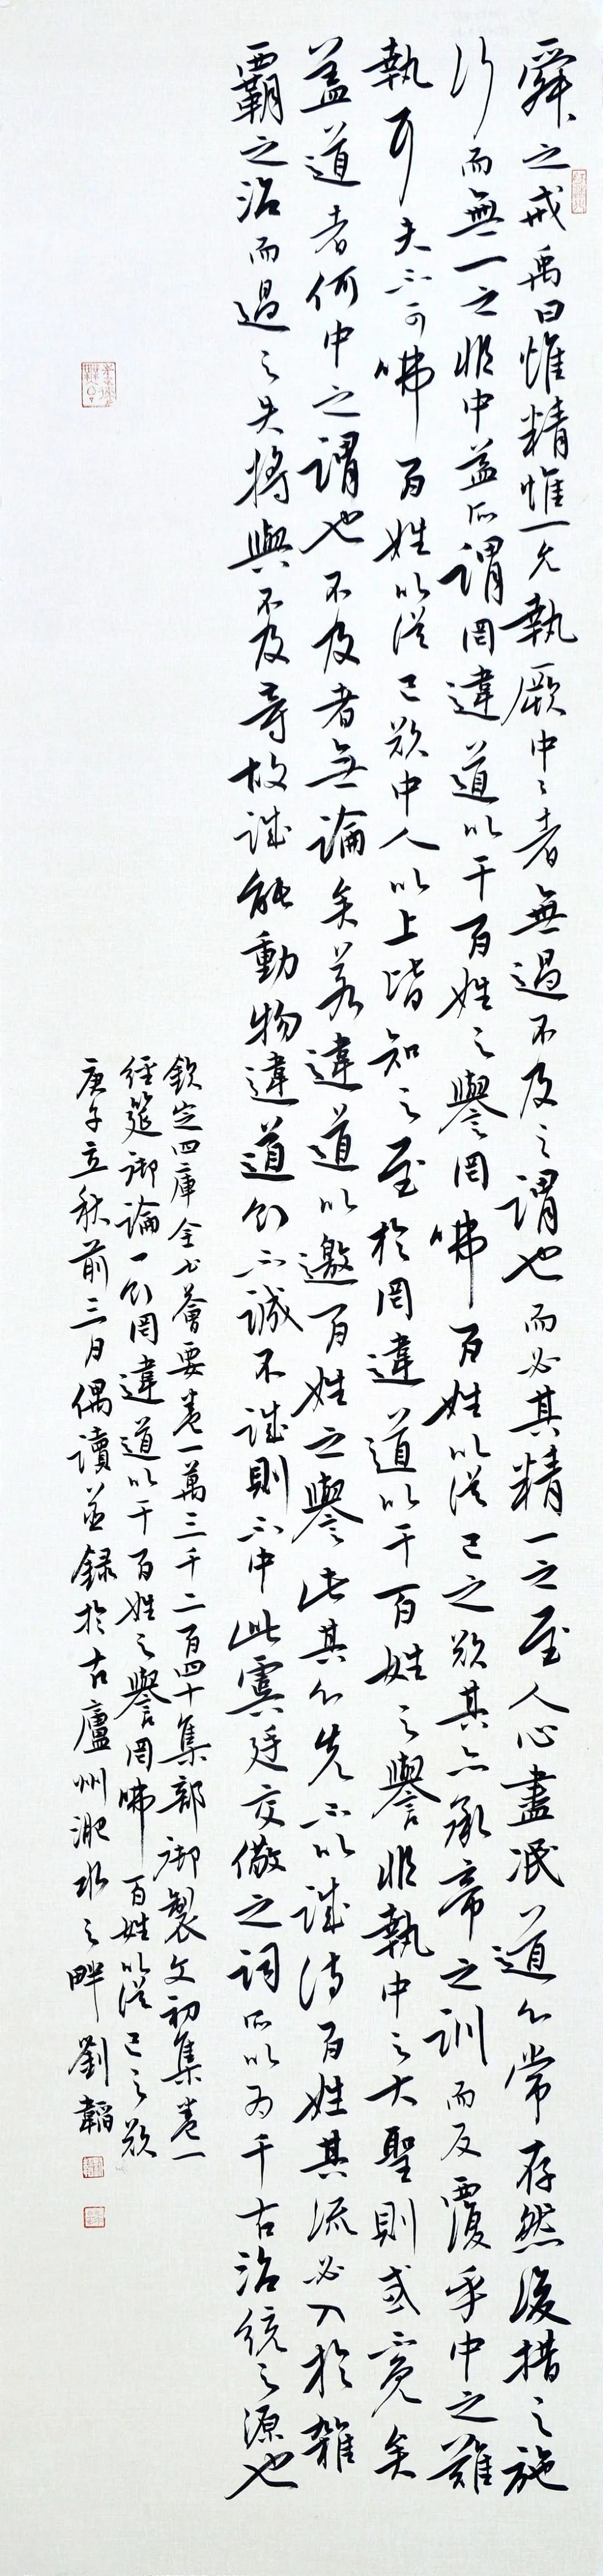 舜之戒禹曰惟精惟一允執厥中々者無過不及之謂也而必其精一之至人心盡泯道心常存然後措之施
行而無一之非中益所謂罔違道以干百姓之譽罔咈百姓以從己之欲其亦承帝之訓而反覆乎中之難
執耳夫不可咈百姓以從己欲中人以上皆知之至於罔違道以干百姓之譽非執中之大聖則或竟矣
蓋道者何中之謂也不及者無論矣若違道以邀百姓之譽此其心先不以誠待百姓其流必入於雜
覇之治而過之失將與不及等故誠能動物違道則不誠不誠則不中此虞廷交儆之詞所以為千古治統之源也
欽定四庫全書薈要卷一萬三千二百四十集部御製文初集卷一
經筵御論一則罔違道以干百姓之譽罔咈百姓以從己之欲
庚子立秋前三日偶讀並錄於古廬州淝水之畔劉韜